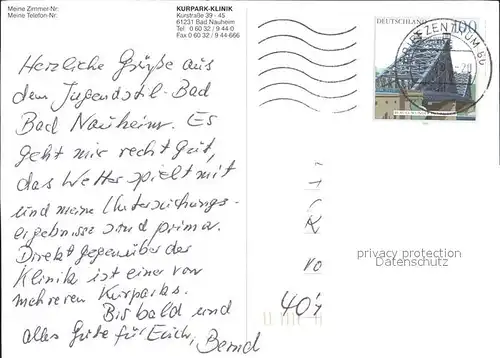 Meine Zimmer-Nr.
Meine Telefon-Nr.
KURPARK-KLINIK
Kurstraße 39 - 45
61231 Bad Nauheim
Tel 0 60 32 / 9 44 0
Fax 0 60 32 / 9 44-666
Herzliche Grüße aus
dem Jugendstil-Bad
Bad Nauheim. Es
geht mir recht gut,
das Wetter spielt mit
und meine Untersuchungs-
ergebnisse sind prima.
Direkt gegenüber der
Klinik ist einer von
mehreren Kurparks.
Bis bald und
alles Gute für Euch, Bernd
DEUTSCHLAND 100
BRIEFZENTRUM 60
K
vo
40
privacy protection
Datenschutz